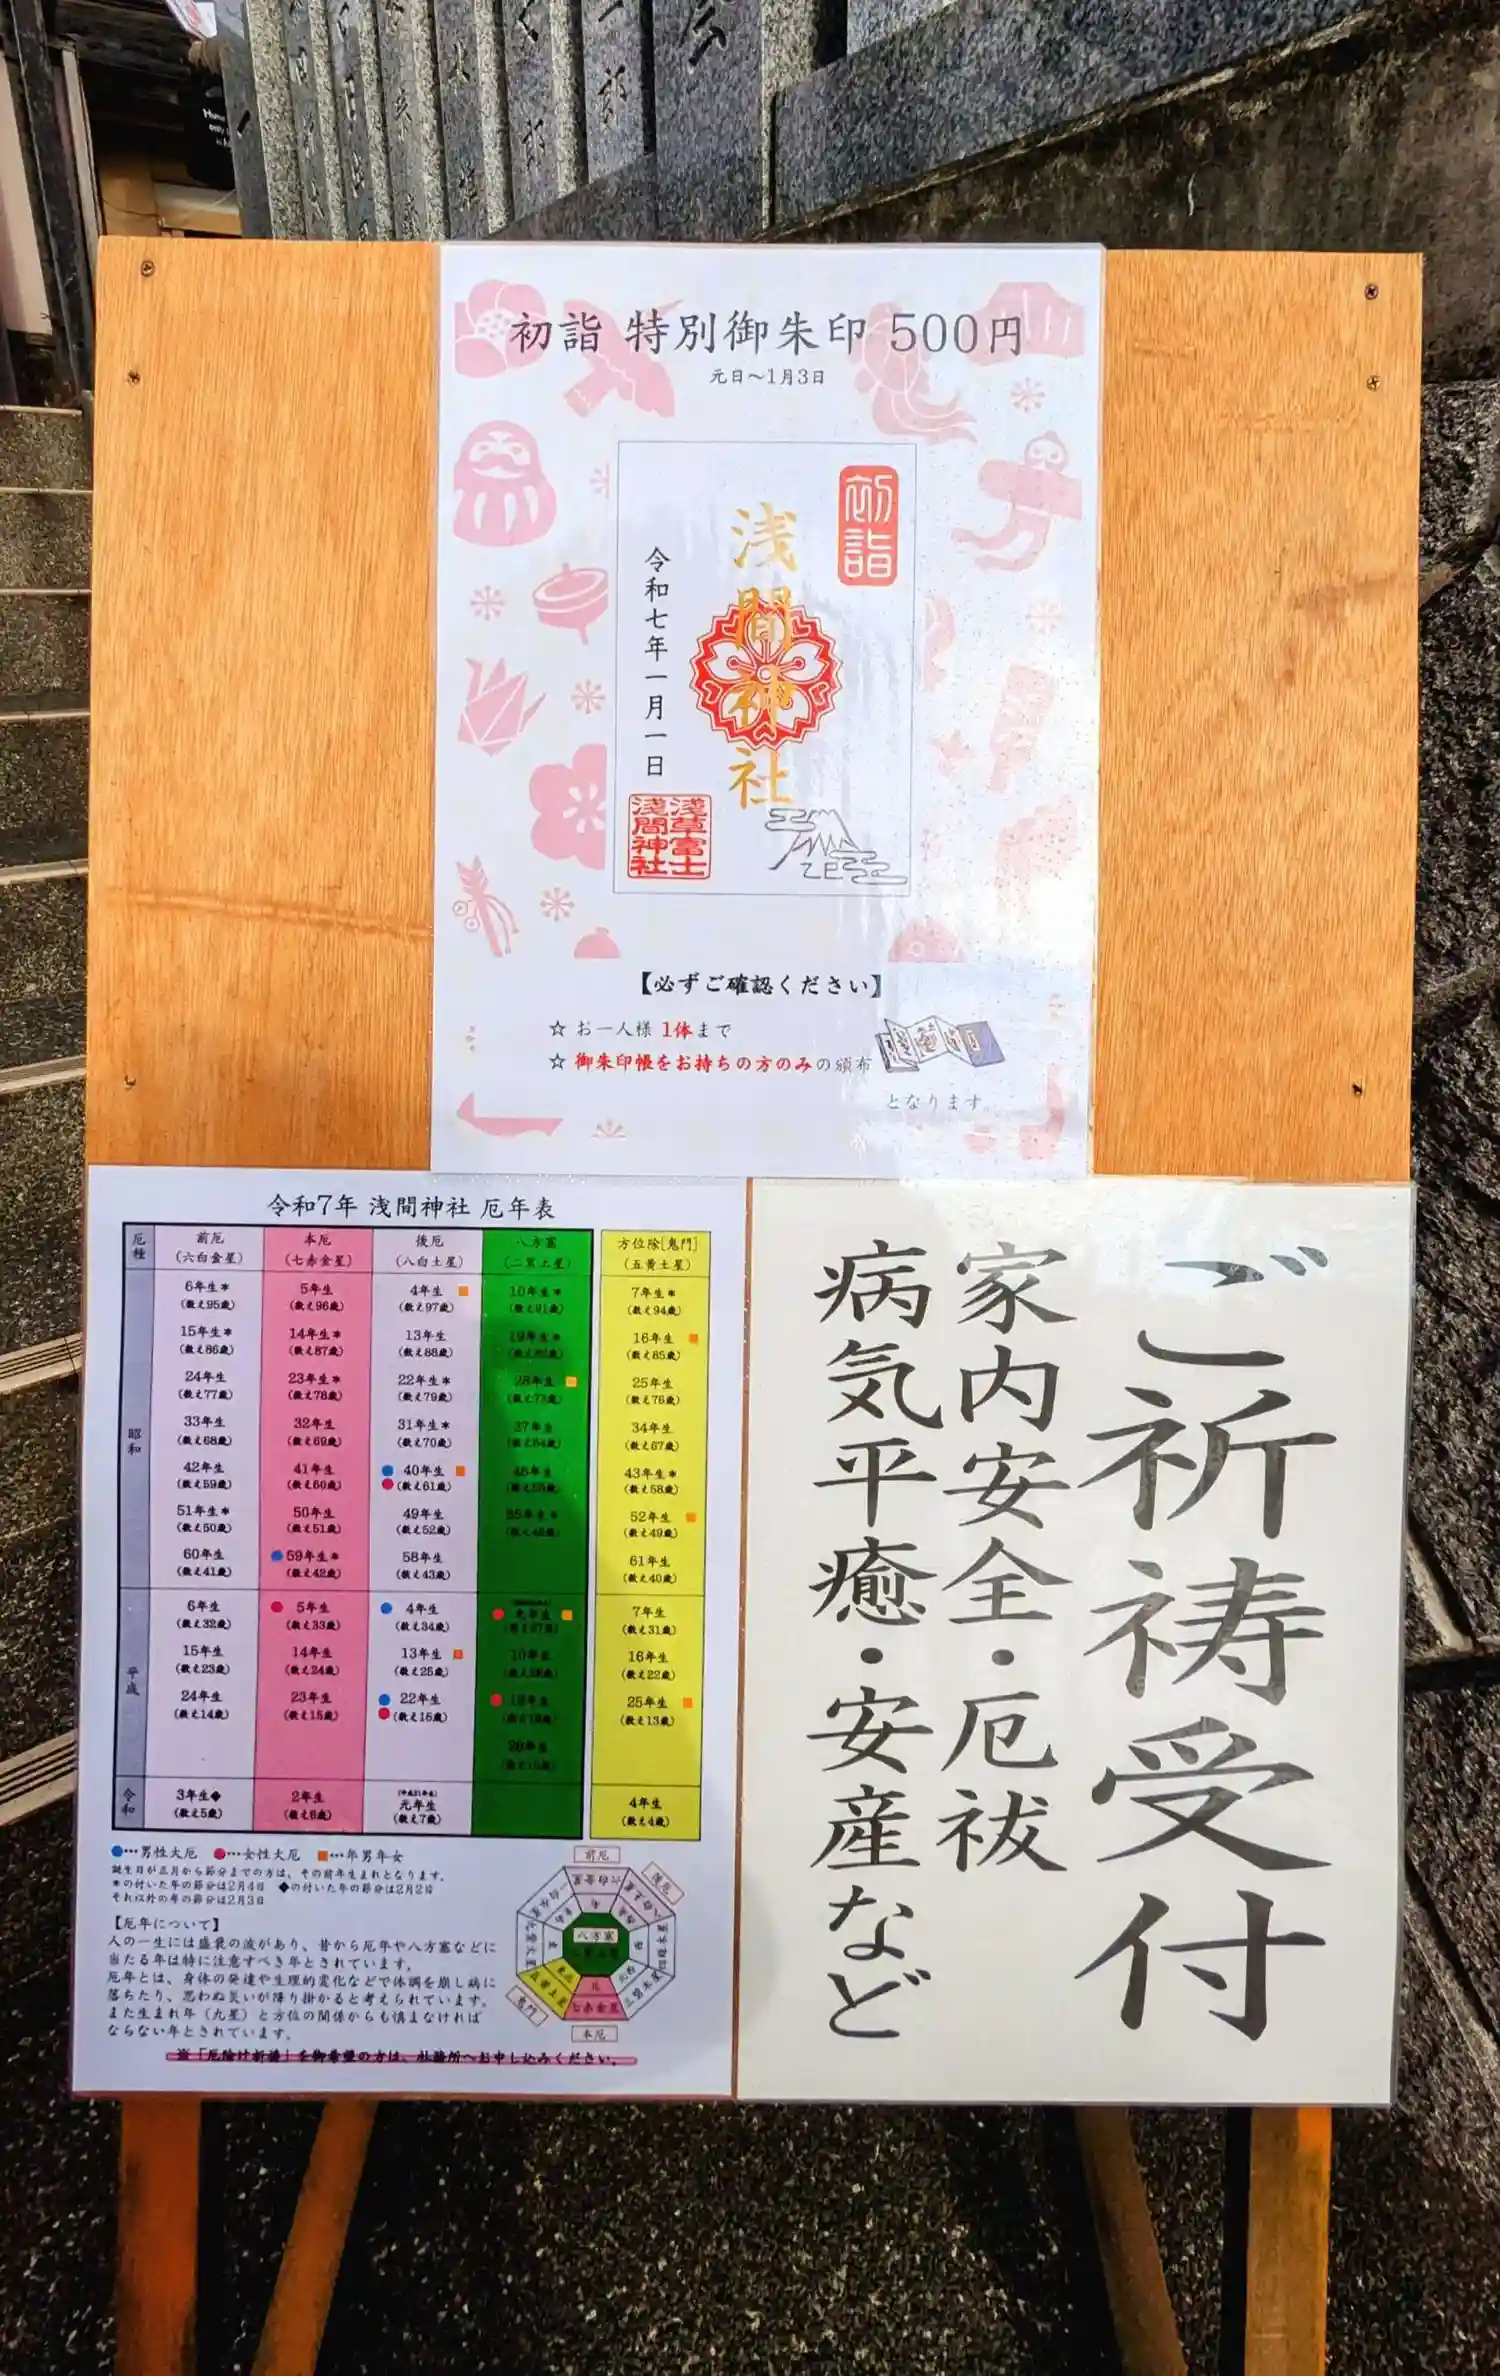 初詣 特別御朱印 500円
元日～1月3日
初詣
浅間神社
令和七年一月一日
浅草富士
浅間神社
【必ずご確認ください】
☆ お一人様 1体まで
☆ 御朱印帳をお持ちの方のみの頒布
となります。
令和7年 浅間神社 厄年表
厄種 前厄 本厄 後厄 八方塞 方位除[鬼門]
(六白金星) (七赤金星) (八白土星) (二黒土星) (五黄土星)
昭和
6年生* 5年生 4年生 10年生* 7年生*
(数え95歳) (数え96歳) (数え97歳) (数え91歳) (数え94歳)
15年生* 14年生* 13年生 19年生* 16年生
(数え86歳) (数え87歳) (数え88歳) (数え85歳)
24年生 23年生* 22年生* 28年生 25年生
(数え77歳) (数え78歳) (数え79歳) (数え73歳) (数え76歳)
33年生 32年生 31年生* 37年生 34年生
(数え68歳) (数え69歳) (数え70歳) (数え64歳) (数え67歳)
42年生 41年生 40年生 46年生 43年生*
(数え59歳) (数え60歳) (数え61歳) (数え55歳) (数え58歳)
51年生* 50年生 49年生 55年生* 52年生
(数え50歳) (数え51歳) (数え52歳) (数え46歳) (数え49歳)
60年生 59年生* 58年生 61年生
(数え41歳) (数え42歳) (数え43歳) (数え40歳)
平成
6年生 5年生 4年生 元年生 7年生
(数え32歳) (数え33歳) (数え34歳) (数え37歳) (数え31歳)
15年生 14年生 13年生 10年生 16年生
(数え23歳) (数え24歳) (数え25歳) (数え28歳) (数え22歳)
24年生 23年生 22年生 19年生 25年生
(数え14歳) (数え15歳) (数え16歳) (数え19歳) (数え13歳)
28年生
(数え10歳)
令和
3年生◆ 2年生 (平成31年生) 4年生
(数え5歳) (数え6歳) 元年生 (数え4歳)
(数え7歳)
●…男性大厄 ●…女性大厄 ■…年男年女
誕生日が正月から節分までの方は、その前年生まれとなります。
*の付いた年の節分は2月4日 ◆の付いた年の節分は2月2日
それ以外の年の節分は2月3日
【厄年について】
人の一生には盛衰の波があり、昔から厄年や八方塞などに
当たる年は特に注意すべき年とされています。
厄年とは、身体の発達や生理的変化などで体調を崩し病に
落ちたり、思わぬ災いが降り掛かると考えられています。
また生まれ年（九星）と方位の関係からも慎まなければ
ならない年とされています。
※「厄除け祈祷」を御希望の方は、社務所へお申し込みください。
前厄
後厄
八方塞
七赤金星
鬼門
本厄
ご祈祷受付
家内安全・厄祓
病気平癒・安産など